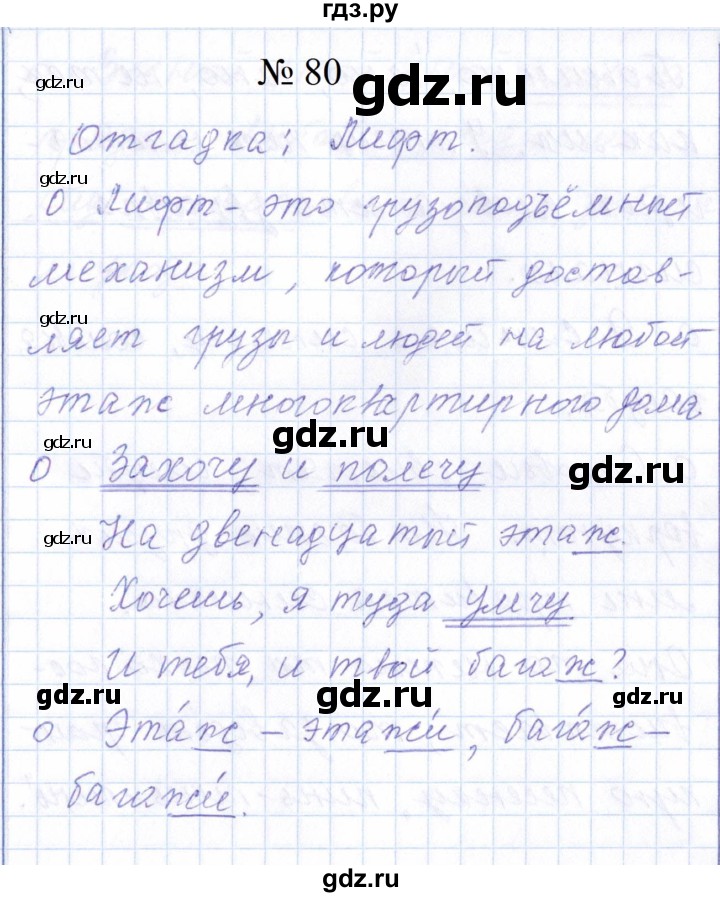 гдз.ру
№ 80
gdz.ru
gdz.ru
Отгадка: Лифт.
gdz.ru
О Лифт – это грузоподъёмный
gdz.ru
gdz.ru
механизм, который достав-
gdz.ru
ляет грузы и людей на любой
этаж многоквартирного дома
gdz.ru
О Захочу и полечу
gdz.ru
gdz.ru
На двенадцатый этаж.
Хочешь, я туда умчу
И тебя, и твой багаж?
gdz.ru
gdz.ru
gdz.ru
о Эта́ж – этажи́, бага́ж –
багажи́.
gdz.ru